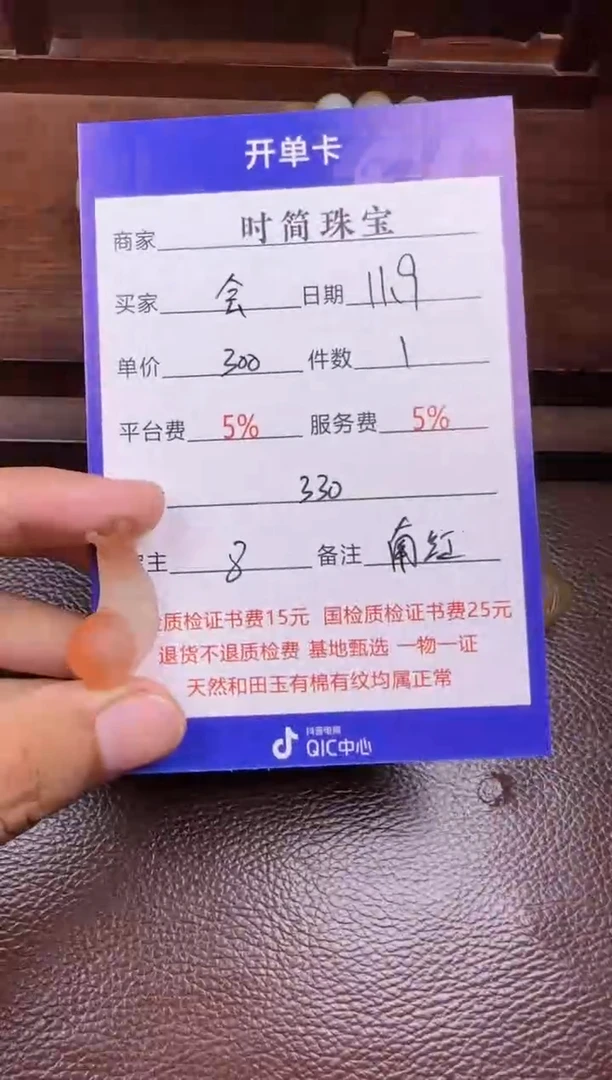 开单卡
商家 时简珠宝
买家 会 日期 11.9
单价 300 件数 1
平台费 5% 服务费 5%
330
主 8 备注 南红
质检证书费15元 国检质检证书费25元
退货不退质检费 基地甄选 一物一证
天然和田玉有棉有纹均属正常
抖音电商
QIC中心